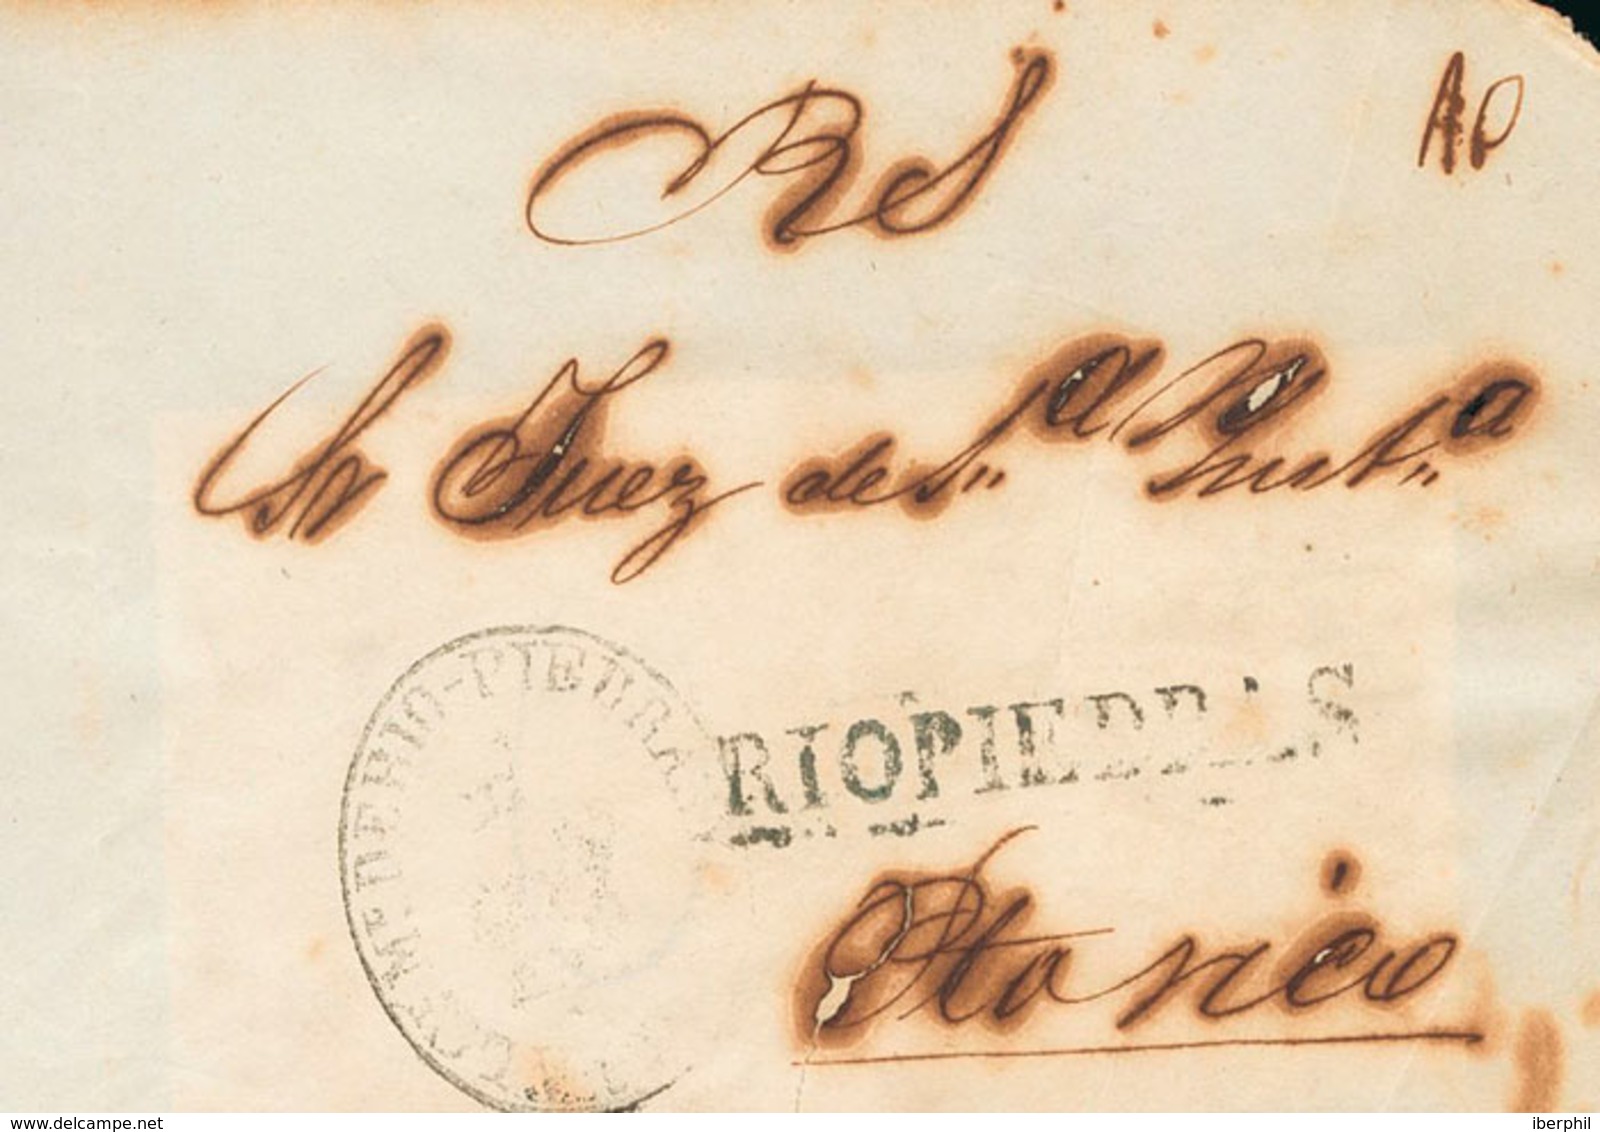 RS
AP
Sr Juez de 1ª Instª
RIOPIEDRAS
DE RIO-PIEDRAS
Pto rico
www.delcampe.net
iberphil